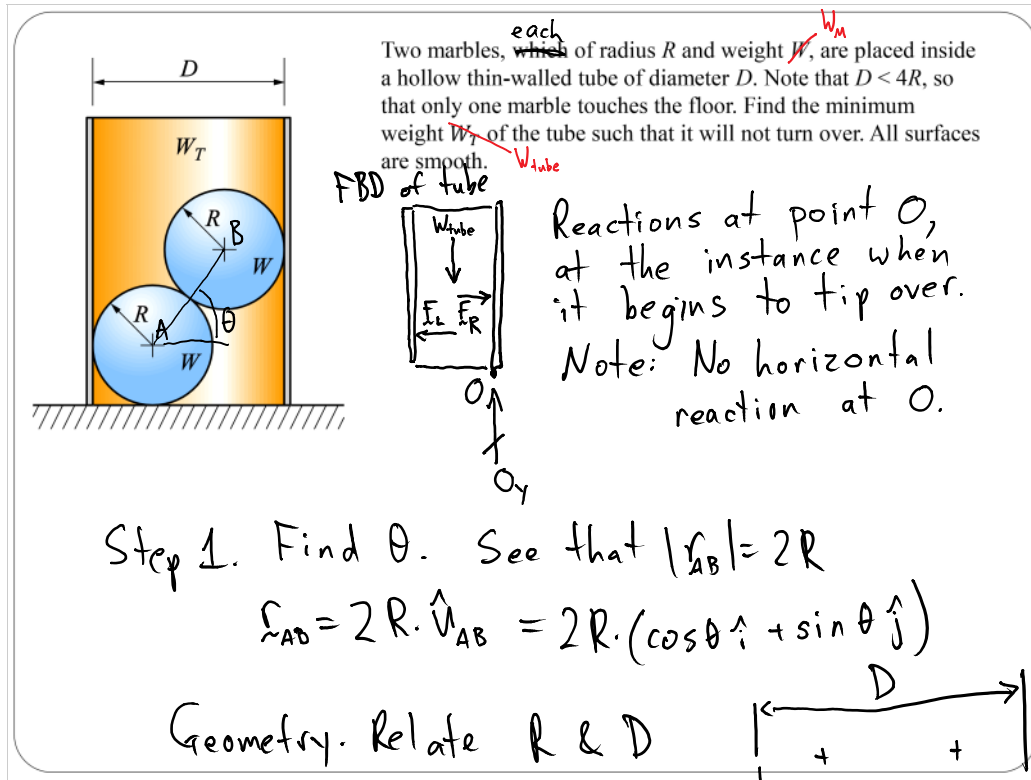 each
W_M
Two marbles, which of radius R and weight W, are placed inside
a hollow thin-walled tube of diameter D. Note that D < 4R, so
that only one marble touches the floor. Find the minimum
weight W_T of the tube such that it will not turn over. All surfaces
are smooth.
W_tube
D
W_T
R
B
W
R
A
θ
W
FBD of tube
W_tube
F_L F_R
O
O_y
Reactions at point O,
at the instance when
it begins to tip over.
Note: No horizontal
reaction at O.
Step 1. Find θ. See that |r_AB| = 2R
r_AB = 2R·û_AB = 2R·(cosθ î + sinθ ĵ)
Geometry. Relate R & D
D
+ +